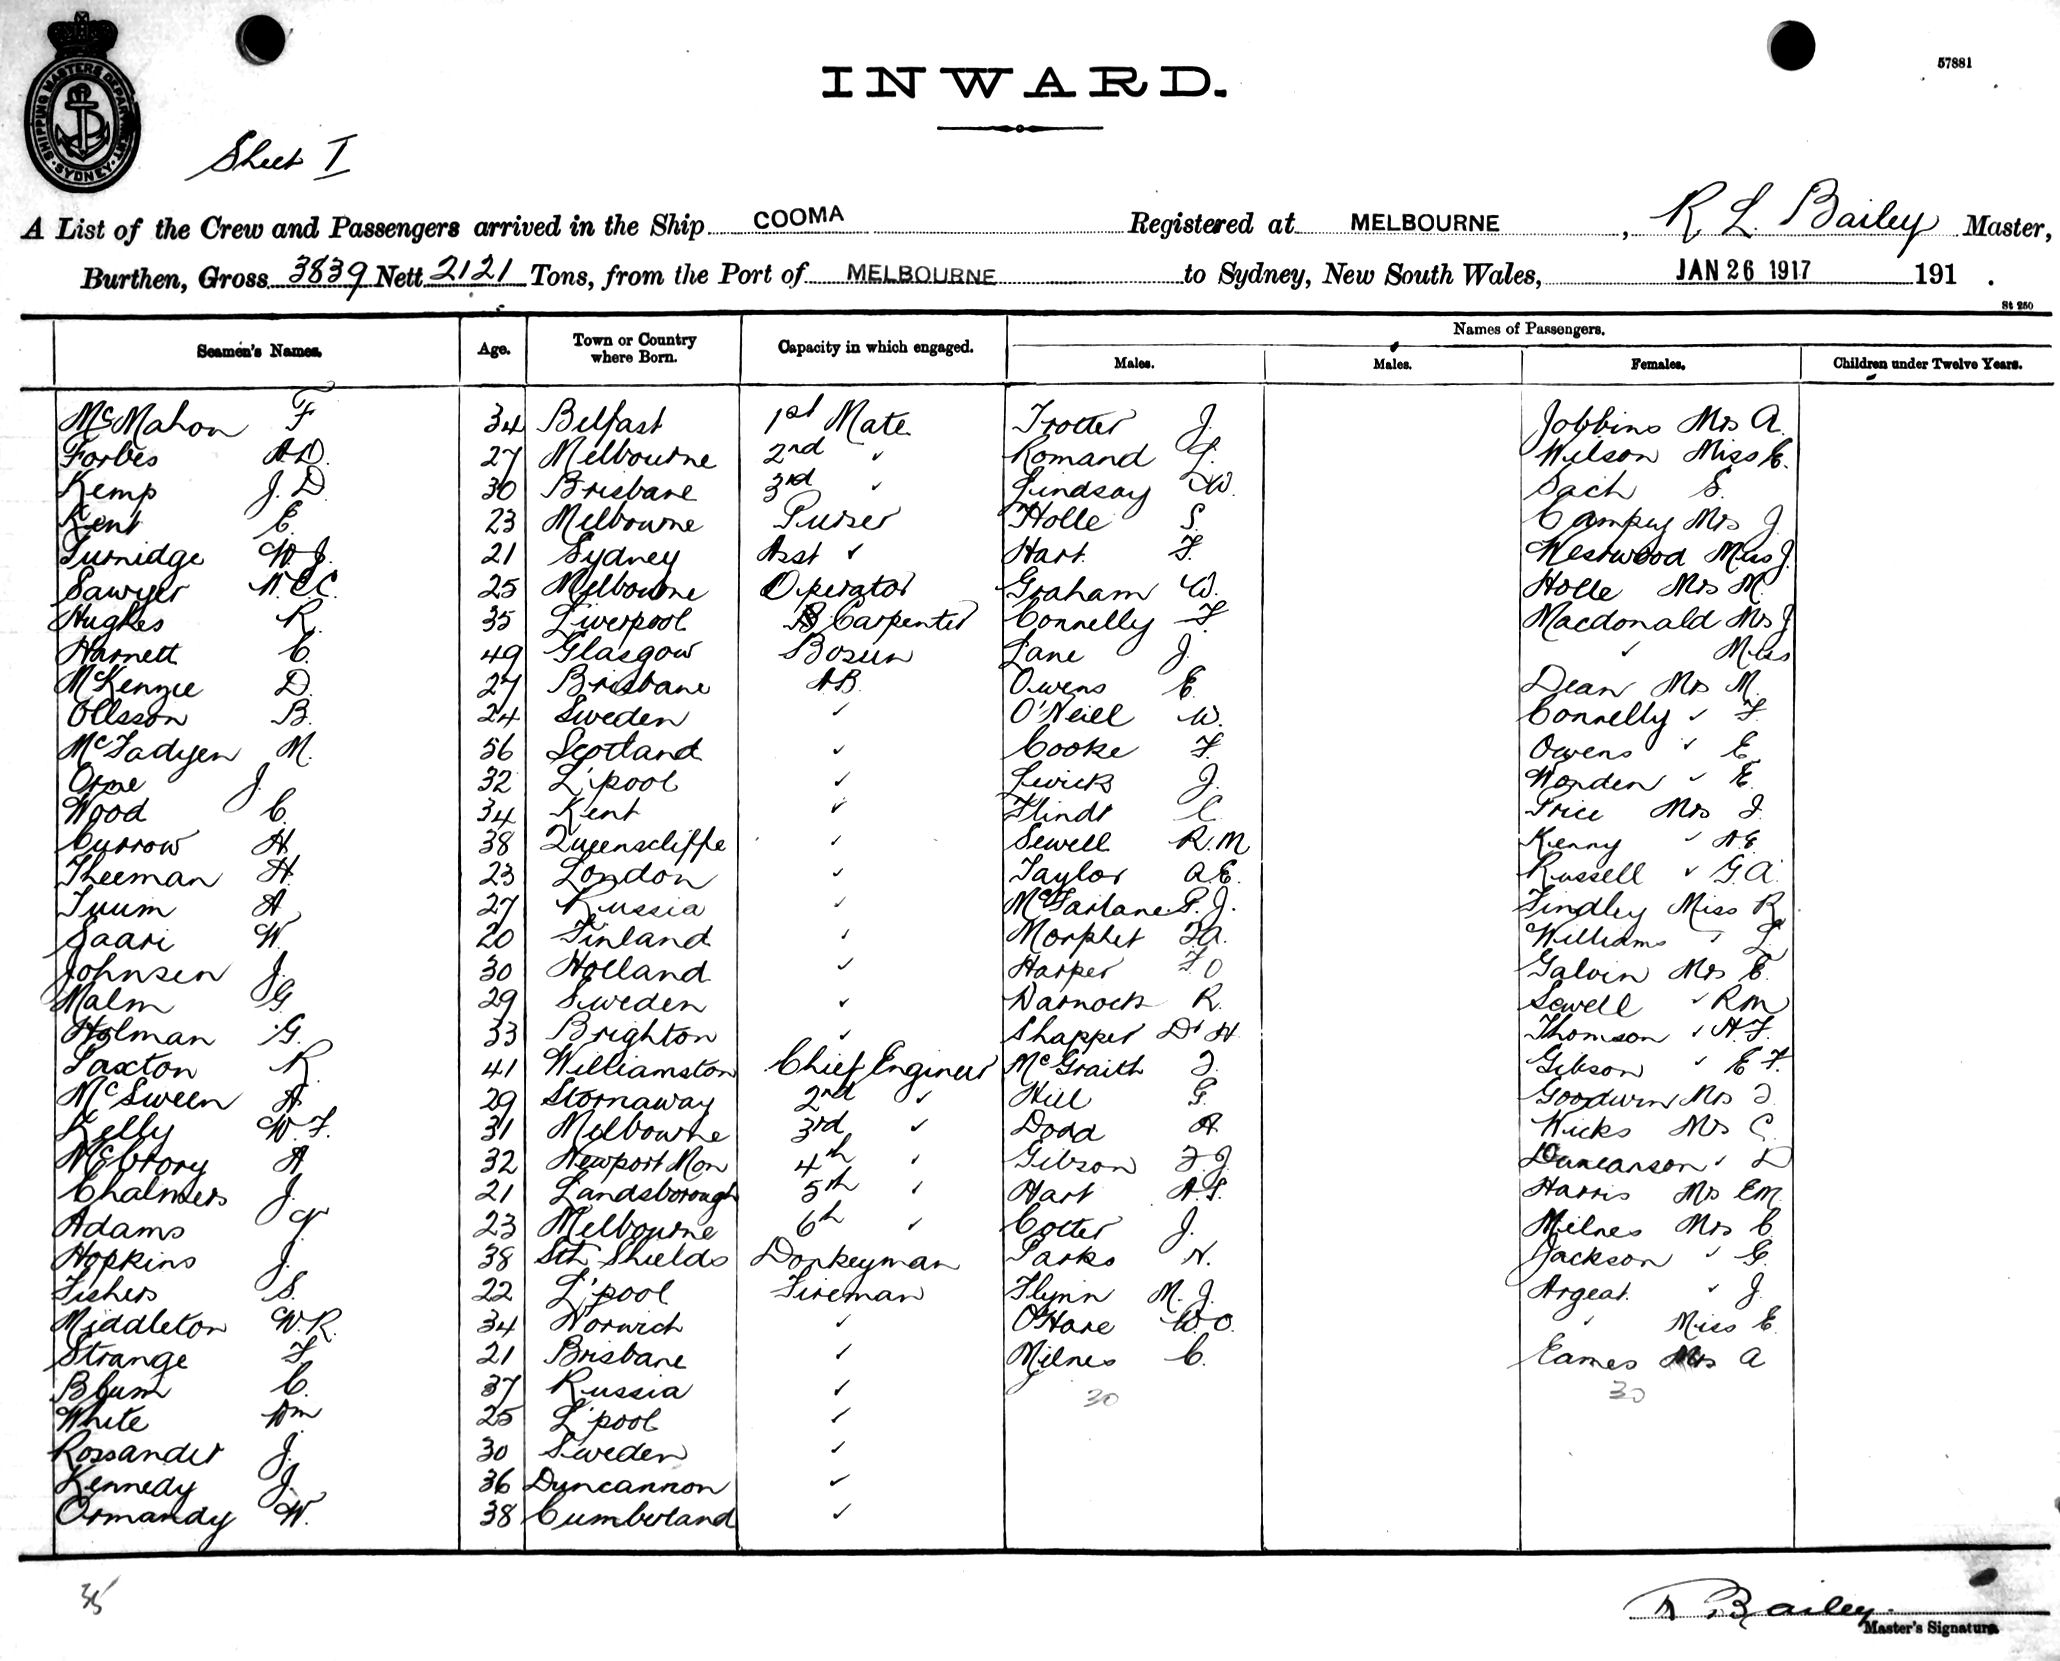 SHIPPING MASTERS DEPARTMENT SYDNEY
57881
INWARD.
Sheet I
A List of the Crew and Passengers arrived in the Ship COOMA Registered at MELBOURNE, R L Bailey Master,
Burthen, Gross 3839 Nett 2121 Tons, from the Port of MELBOURNE to Sydney, New South Wales, JAN 26 1917 191 .
St 250
Seamen's Names. Age. Town or Country where Born. Capacity in which engaged. Names of Passengers.
Males. Males. Females. Children under Twelve Years.
McMahon F 34 Belfast 1st Mate Trotter J. Jobbins Mrs A.
Forbes A.D. 27 Melbourne 2nd " Romand L. Wilson Miss E.
Kemp J. D. 30 Brisbane 3rd " Lindsay W. Sach S.
Kent E. 23 Melbourne Purser Holle S. Campey Mrs J.
Turnidge W. J. 21 Sydney Asst " Hart F. Westwood Miss J.
Sawyer 25 Melbourne Operator Graham W. Holle Mrs M.
Hughes R. 35 Liverpool Carpenter Connelly F. Macdonald Mrs J
Harnett C. 49 Glasgow Bosun Lane J. " Miss
McKenzie D. 27 Brisbane AB. Owens E. Dean Mrs M.
Ollsson B. 24 Sweden " O'Neill W. Connelly " F.
McFadyen M. 56 Scotland " Cooke F. Owens " E.
Orme J. 32 L'pool " J. " E.
Wood C. 34 Kent " Flindt C. Price Mrs J.
Currow H. 38 Queenscliffe " Sewell R.M Kenny " A.E.
Theeman H. 23 London " Taylor A.E. Russell " G.A.
Tuum A. 27 Russia " McFarlane P. J. Findley Miss R
Saari W. 20 Finland " Morphet F.A. Williams " L.
Johnsen J. 30 Holland " Harper F O Galvin Mrs E.
Malm G. 29 Sweden " R. Sewell " R M
Holman G. 33 Brighton " Shapper Dr H. Thomson " A. F.
Saxton R. 41 Williamston Chief Engineer McGraith J. Gibson " E F.
McSween A. 29 Stornaway 2nd " Hill G. Goodwin Mrs J.
Kelly W. F. 31 Melbourne 3rd " Dodd A Wicks Mrs C.
McCrory A. 32 Newport Mon 4th " Gibson F. J. Duncanson " D
Chalmers J. 21 Landsborough 5th " Hart A. S. Harris Mrs E M.
Adams N. 23 Melbourne 6th " Cotter J. Milnes Mrs C.
Hopkins J. 38 Sth Shields Donkeyman Parks N. Jackson " G.
Fisher S. 22 L'pool Fireman Flynn M. J. Argeat. " J.
Middleton W. R. 34 Norwich " O'Hare W. O. " Miss E.
Strange F. 21 Brisbane " Milnes C. Eames Mrs A
Blum C. 37 Russia " 30 30
White Wm 25 L'pool "
Rossander J. 30 Sweden "
Kennedy J. 36 Duncannon "
Ormandy W. 38 Cumberland "
35
R Bailey.
Master's Signature